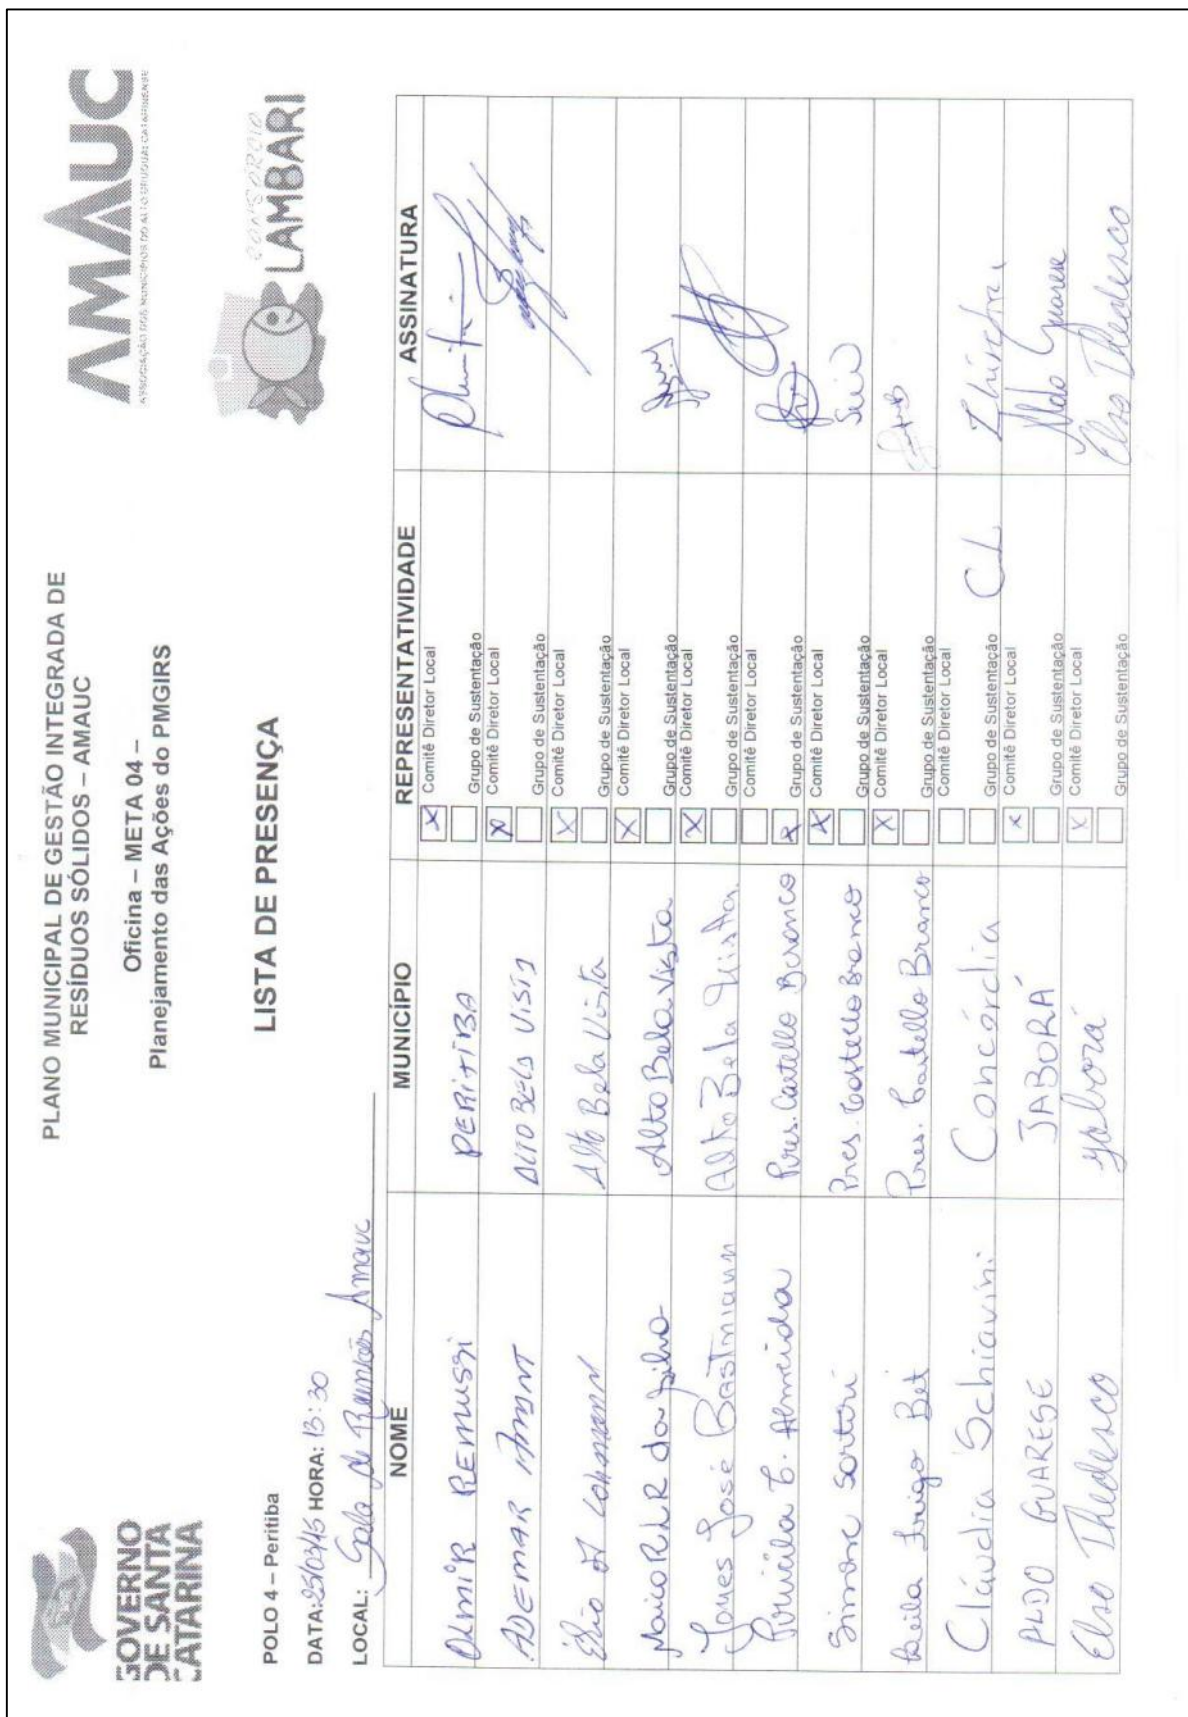 GOVERNO
DE SANTA
CATARINA
PLANO MUNICIPAL DE GESTÃO INTEGRADA DE
RESÍDUOS SÓLIDOS – AMAUC
Oficina – META 04 –
Planejamento das Ações do PMGIRS
AMAUC
ASSOCIAÇÃO DOS MUNICÍPIOS DO ALTO URUGUAI CATARINENSE
CONSÓRCIO
LAMBARI
LISTA DE PRESENÇA
POLO 4 – Peritiba
DATA: 25/03/15 HORA: 13:30
LOCAL: Sala de Reuniões Amauc
NOME MUNICÍPIO REPRESENTATIVIDADE ASSINATURA
REMUSSI PERITIBA x Comitê Diretor Local
Grupo de Sustentação
ADEMAR ALTO BELA VISTA x Comitê Diretor Local
Grupo de Sustentação
Élio Lohmann Alto Bela Vista x Comitê Diretor Local
Grupo de Sustentação
da Silva Alto Bela Vista x Comitê Diretor Local
Grupo de Sustentação
José Alto Bela Vista x Comitê Diretor Local
Grupo de Sustentação
Almeida Pres. Castello Branco Comitê Diretor Local
x Grupo de Sustentação
Simone Sartori Pres. Castello Branco x Comitê Diretor Local
Grupo de Sustentação
Pres. Castello Branco x Comitê Diretor Local
Grupo de Sustentação
Cláudia Schiavini Concórdia Comitê Diretor Local CL
Grupo de Sustentação
ALDO GUARESE JABORÁ x Comitê Diretor Local Aldo Guarese
Grupo de Sustentação
Elso Thedesco Jaborá x Comitê Diretor Local Elso Thedesco
Grupo de Sustentação